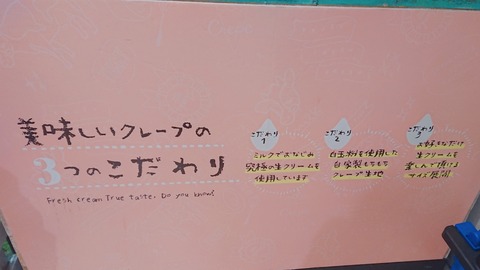 美味しいクレープの
3つのこだわり
Fresh cream True taste. Do you know?
こだわり
1
ミルクでおなじみ
究極の生クリームを
使用しています
こだわり
2
白玉粉を使用した
自家製もちもち
クレープ生地
こだわり
3
お好きなだけ
生クリームを
楽しんで頂ける
サイズ展開